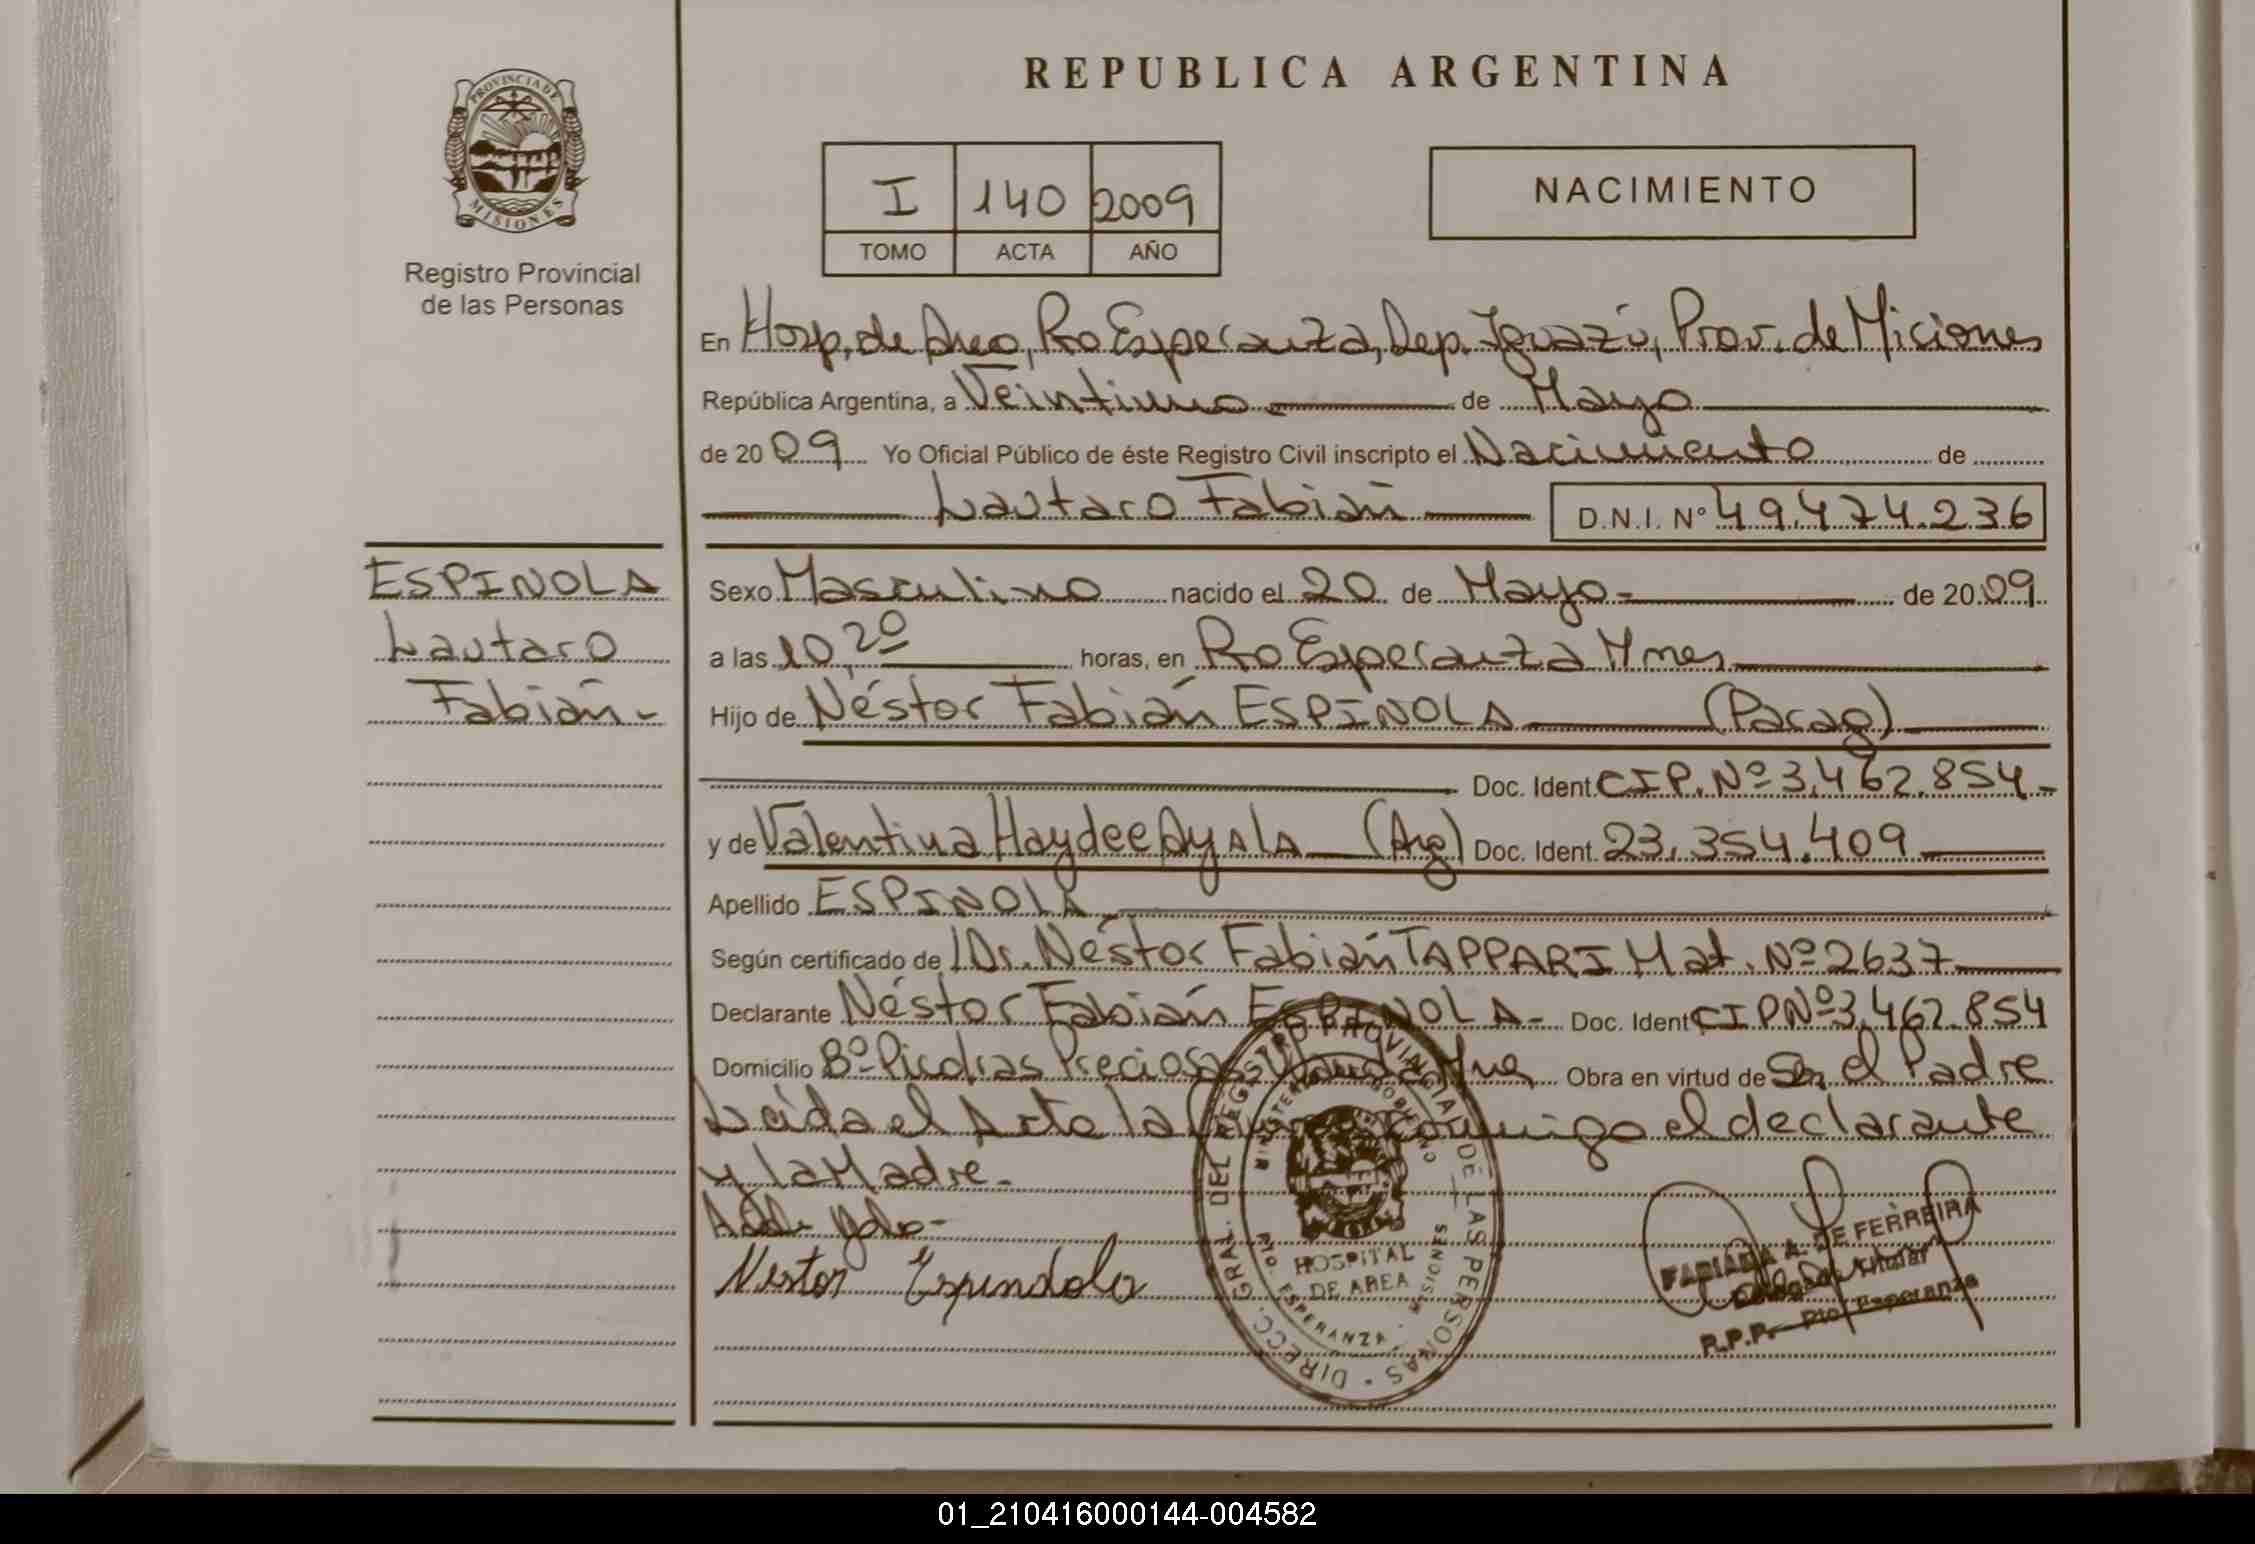 PROVINCIA DE
MISIONES
Registro Provincial
de las Personas
REPUBLICA ARGENTINA
I 140 2009
TOMO ACTA AÑO
NACIMIENTO
En Hosp. de Area, Pto Esperanza, Dep. Iguazú, Prov. de Miciones
República Argentina, a Veintiuno - de Mayo
de 2009 Yo Oficial Público de éste Registro Civil inscripto el Nacimiento de
Lautaro Fabián D.N.I. Nº 49.474.236
ESPINOLA
Lautaro
Fabián -
Sexo Masculino nacido el 20 de Mayo - de 2009
a las 10,20 horas, en Pto Esperanza Mnes
Hijo de Néstor Fabián ESPINOLA (Parag)
Doc. Ident. CIP. Nº 3.462.854 -
y de Valentina Haydee Ayala (Arg) Doc. Ident. 23.354.409
Apellido ESPINOLA
Según certificado de Dr. Néstor Fabián TAPPARI Mat. Nº 2637
Declarante Néstor Fabián ESPINOLA - Doc. Ident CIP Nº 3.462.854
Domicilio Bº Piedras Preciosas Wanda Mnes Obra en virtud de Ser el Padre
Leída el Acta la conmigo el declarante
y la Madre -
Nestor Espindola
DIRECC. GRAL. DEL REGISTRO PROVINCIAL DE LAS PERSONAS
MINISTERIO GOBIERNO
HOSPITAL
DE AREA
PTO. ESPERANZA - MISIONES
FABIANA A. DE FERREIRA
Delegada Titular
R.P.P. - Pto. Esperanza
01_210416000144-004582